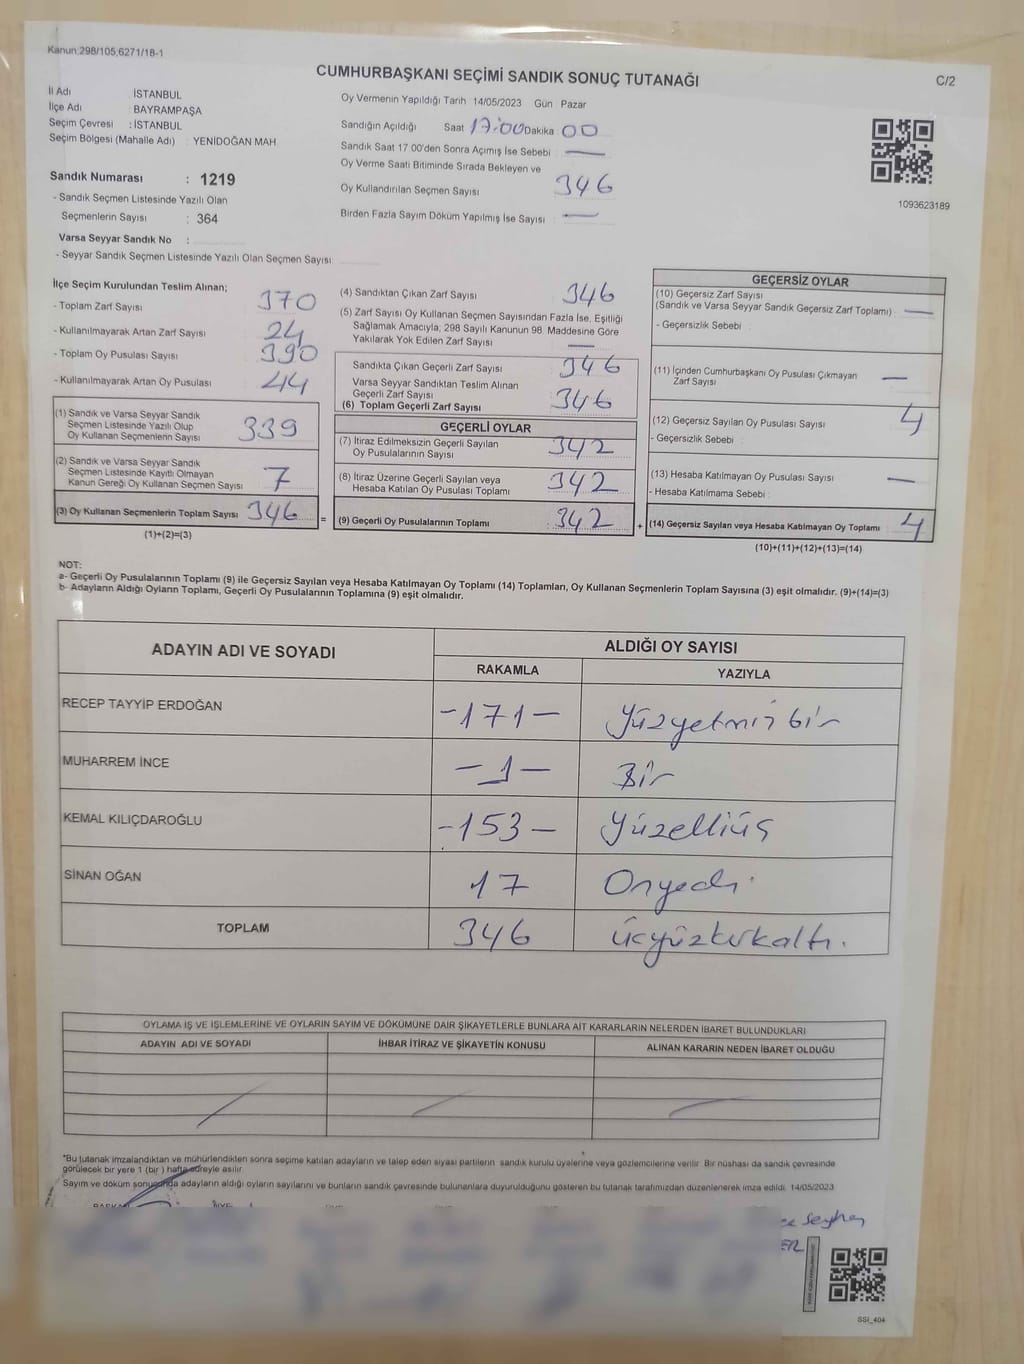 Kanun:298/105,6271/18-1
CUMHURBAŞKANI SEÇİMİ SANDIK SONUÇ TUTANAĞI
C/2
İl Adı : İSTANBUL
İlçe Adı : BAYRAMPAŞA
Seçim Çevresi : İSTANBUL
Seçim Bölgesi (Mahalle Adı) : YENİDOĞAN MAH.
Sandık Numarası : 1219
- Sandık Seçmen Listesinde Yazılı Olan
Seçmenlerin Sayısı : 364
Varsa Seyyar Sandık No :
- Seyyar Sandık Seçmen Listesinde Yazılı Olan Seçmen Sayısı:
Oy Vermenin Yapıldığı Tarih 14/05/2023 Gün : Pazar
Sandığın Açıldığı Saat 17:00 Dakika : 00
Sandık Saat 17 00'den Sonra Açımış İse Sebebi : —
Oy Verme Saati Bitiminde Sırada Bekleyen ve
Oy Kullandırılan Seçmen Sayısı 346
Birden Fazla Sayım Döküm Yapılmış İse Sayısı : —
1093623189
İlçe Seçim Kurulundan Teslim Alınan;
- Toplam Zarf Sayısı 370
- Kullanılmayarak Artan Zarf Sayısı 24
- Toplam Oy Pusulası Sayısı 390
- Kullanılmayarak Artan Oy Pusulası 44
(1) Sandık ve Varsa Seyyar Sandık
Seçmen Listesinde Yazılı Olup
Oy Kullanan Seçmenlerin Sayısı 339
(2) Sandık ve Varsa Seyyar Sandık
Seçmen Listesinde Kayıtlı Olmayan
Kanun Gereği Oy Kullanan Seçmen Sayısı 7
(3) Oy Kullanan Seçmenlerin Toplam Sayısı 346 =
(1)+(2)=(3)
(4) Sandıktan Çıkan Zarf Sayısı 346
(5) Zarf Sayısı Oy Kullanan Seçmen Sayısından Fazla İse, Eşitliği
Sağlamak Amacıyla; 298 Sayılı Kanunun 98. Maddesine Göre
Yakılarak Yok Edilen Zarf Sayısı —
Sandıkta Çıkan Geçerli Zarf Sayısı 346
Varsa Seyyar Sandıktan Teslim Alınan
Geçerli Zarf Sayısı 346
(6) Toplam Geçerli Zarf Sayısı
GEÇERLİ OYLAR
(7) İtiraz Edilmeksizin Geçerli Sayılan
Oy Pusulalarının Sayısı 342
(8) İtiraz Üzerine Geçerli Sayılan veya
Hesaba Katılan Oy Pusulası Toplamı 342
(9) Geçerli Oy Pusulalarının Toplamı : 342 +
GEÇERSİZ OYLAR
(10) Geçersiz Zarf Sayısı
(Sandık ve Varsa Seyyar Sandık Geçersiz Zarf Toplamı) : —
- Geçersizlik Sebebi :
(11) İçinden Cumhurbaşkanı Oy Pusulası Çıkmayan
Zarf Sayısı —
(12) Geçersiz Sayılan Oy Pusulası Sayısı 4
- Geçersizlik Sebebi :
(13) Hesaba Katılmayan Oy Pusulası Sayısı —
- Hesaba Katılmama Sebebi :
(14) Geçersiz Sayılan veya Hesaba Katılmayan Oy Toplamı 4
(10)+(11)+(12)+(13)=(14)
NOT:
a- Geçerli Oy Pusulalarının Toplamı (9) ile Geçersiz Sayılan veya Hesaba Katılmayan Oy Toplamı (14) Toplamları, Oy Kullanan Seçmenlerin Toplam Sayısına (3) eşit olmalıdır. (9)+(14)=(3)
b- Adayların Aldığı Oyların Toplamı, Geçerli Oy Pusulalarının Toplamına (9) eşit olmalıdır.
ADAYIN ADI VE SOYADI ALDIĞI OY SAYISI
RAKAMLA YAZIYLA
RECEP TAYYİP ERDOĞAN -171- Yüzyetmiş bir
MUHARREM İNCE -1- Bir
KEMAL KILIÇDAROĞLU -153- Yüzelliüç
SİNAN OĞAN 17 Onyedi
TOPLAM 346 Üçyüzkırkaltı.
OYLAMA İŞ VE İŞLEMLERİNE VE OYLARIN SAYIM VE DÖKÜMÜNE DAİR ŞİKAYETLERLE BUNLARA AİT KARARLARIN NELERDEN İBARET BULUNDUKLARI
ADAYIN ADI VE SOYADI İHBAR İTİRAZ VE ŞİKAYETİN KONUSU ALINAN KARARIN NEDEN İBARET OLDUĞU
*Bu tutanak imzalandıktan ve mühürlendikten sonra seçime katılan adayların ve talep eden siyasi partilerin sandık kurulu üyelerine veya gözlemcilerine verilir. Bir nüshası da sandık çevresinde
görülecek bir yere 1 (bir) hafta süreyle asılır.
Sayım ve döküm sonucunda adayların aldığı oyların sayılarını ve bunların sandık çevresinde bulunanlara duyurulduğunu gösteren bu tutanak tarafımızdan düzenlenerek imza edildi. 14/05/2023
SSI_404